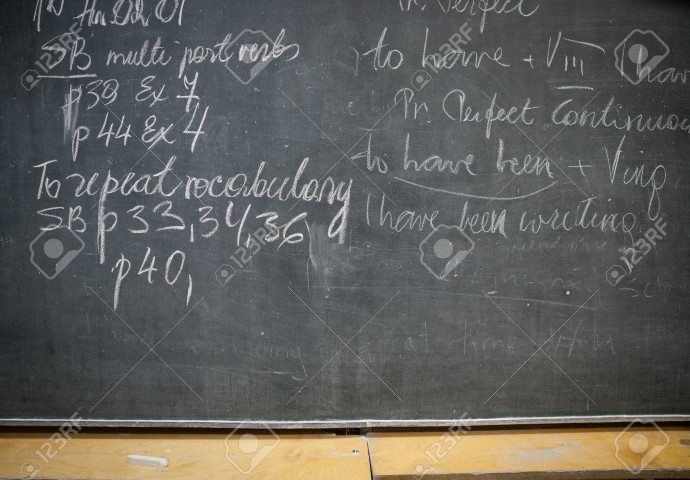 SB multi part verbs
p 38 Ex 7
p 44 Ex 4
To repeat vocabulary
SB p 33, 34, 36
p 40,
Pr. Perfect
to have + VIII I have
Pr. Perfect Continuou
to have been + Ving
I have been writing.
at time
123RF